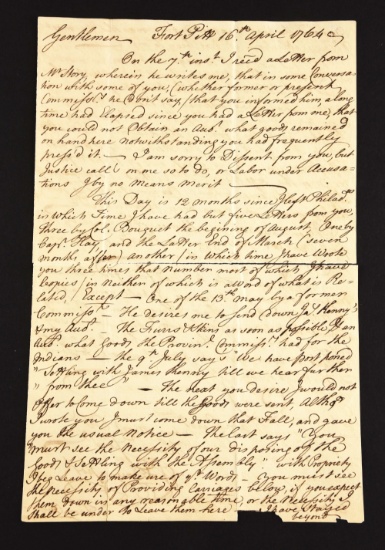 Gentlemen Fort Pitt 16th April 1764
On the 7th inst. I rec'd a Letter from
Mr Story, wherein he writes me, that in some Conversa
tion with some of you, (whether former or present
Commissrs he don't say) that you informed him, along
time had Elapsed since you had a Letter from me, & that
you could not Obtain an Acct. what goods remained
on hand here notwithstanding you had frequently
press'd it — I am sorry to Dissent from you, but
Justice calls on me so to do, or Labor under Accusa-
tions I by no Means Merit
This Day is 12 months since I left Philada
in which Time I have had but five Letters from you,
three by Col. Bouquet the begining of August, One by
Capt. Hay, and the Latter End of March (seven
months after) another / in which time I have wrote
you three times that Number most of which I have
Copies / in Neither of which is a Word of what is Re-
lated, Except — One of the 13th may by a former
Commissr. He desires me to send Down Js Kenny's
& my Acct. The Furrs & Skins as soon as possible & an
Acct. what Goods the Provinl. Commissrs had for the
Indians — the 9th July says "We have postponed
"Settling with James Kenny till we hear further
"from thee" — The next you desire I would not
Offer to Come down till the Goods were sent, Altho
I wrote you I must come down that Fall, and gave
you the usual Notice — The last says "You
must see the Necessity of our disposing of the
Goods & Settling with the Assembly" with Propriety
I beg Leave to make use of yr Words — You must see
the Necessity of Providing Carriages below if you expect
them down in any reasonable time, or the Necessity I
shall be under to Leave them here I have Staied
beyond